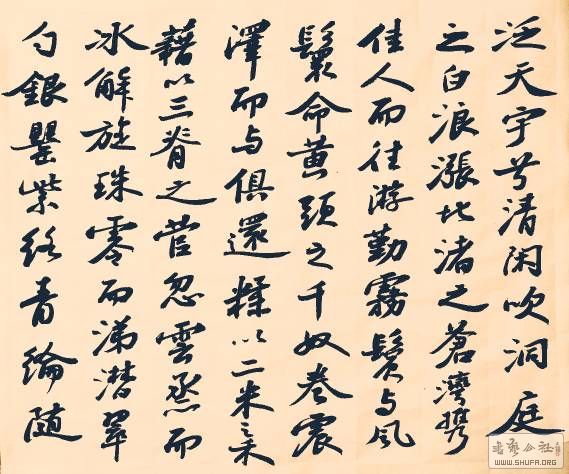 泛天宇兮清閑吹洞庭
之白浪漲北渚之蒼灣攜
佳人而往游勤霧鬢与風
鬟命黄頭之千奴卷震
澤而与俱還糅以二米之禾
藉以三脊之菅忽雲烝而
冰解旋珠零而涕潸翠
勺銀罌紫絡青綸隨
WWW.SHUFA.ORG